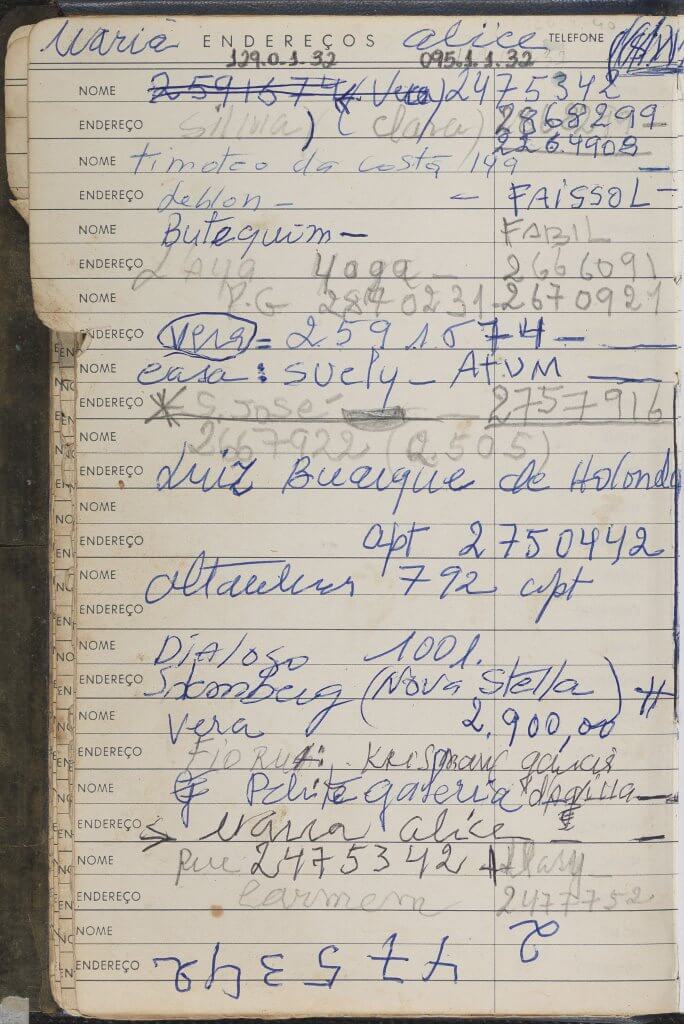 Maria ENDEREÇOS alice TELEFONE
129.0.1.32 095.1.1.32
NOME 2591674 Vera) 2475342
ENDEREÇO Silvia) (Clara) 2868299
2264908
NOME timoteo da costa 199
ENDEREÇO Leblon - - FAISSOL -
NOME Butequim - FABIL
ENDEREÇO 2666091
NOME P.G 2870231 - 2670921
ENDEREÇO Vera = 2591674 -
NOME casa: SUELY - ATVM
ENDEREÇO S. José 2757916
NOME 2667922 (2.505)
ENDEREÇO Luiz Buarque de Holonda
NOME
ENDEREÇO apt 2750442
NOME 792 apt
ENDEREÇO
NOME DiAloso 1001.
ENDEREÇO (Nova Stella) #
NOME Vera 2.900,00
ENDEREÇO
NOME galeria
ENDEREÇO Maria alice
NOME 2475342
ENDEREÇO Carmem 2477752
NOME 2
ENDEREÇO 475342